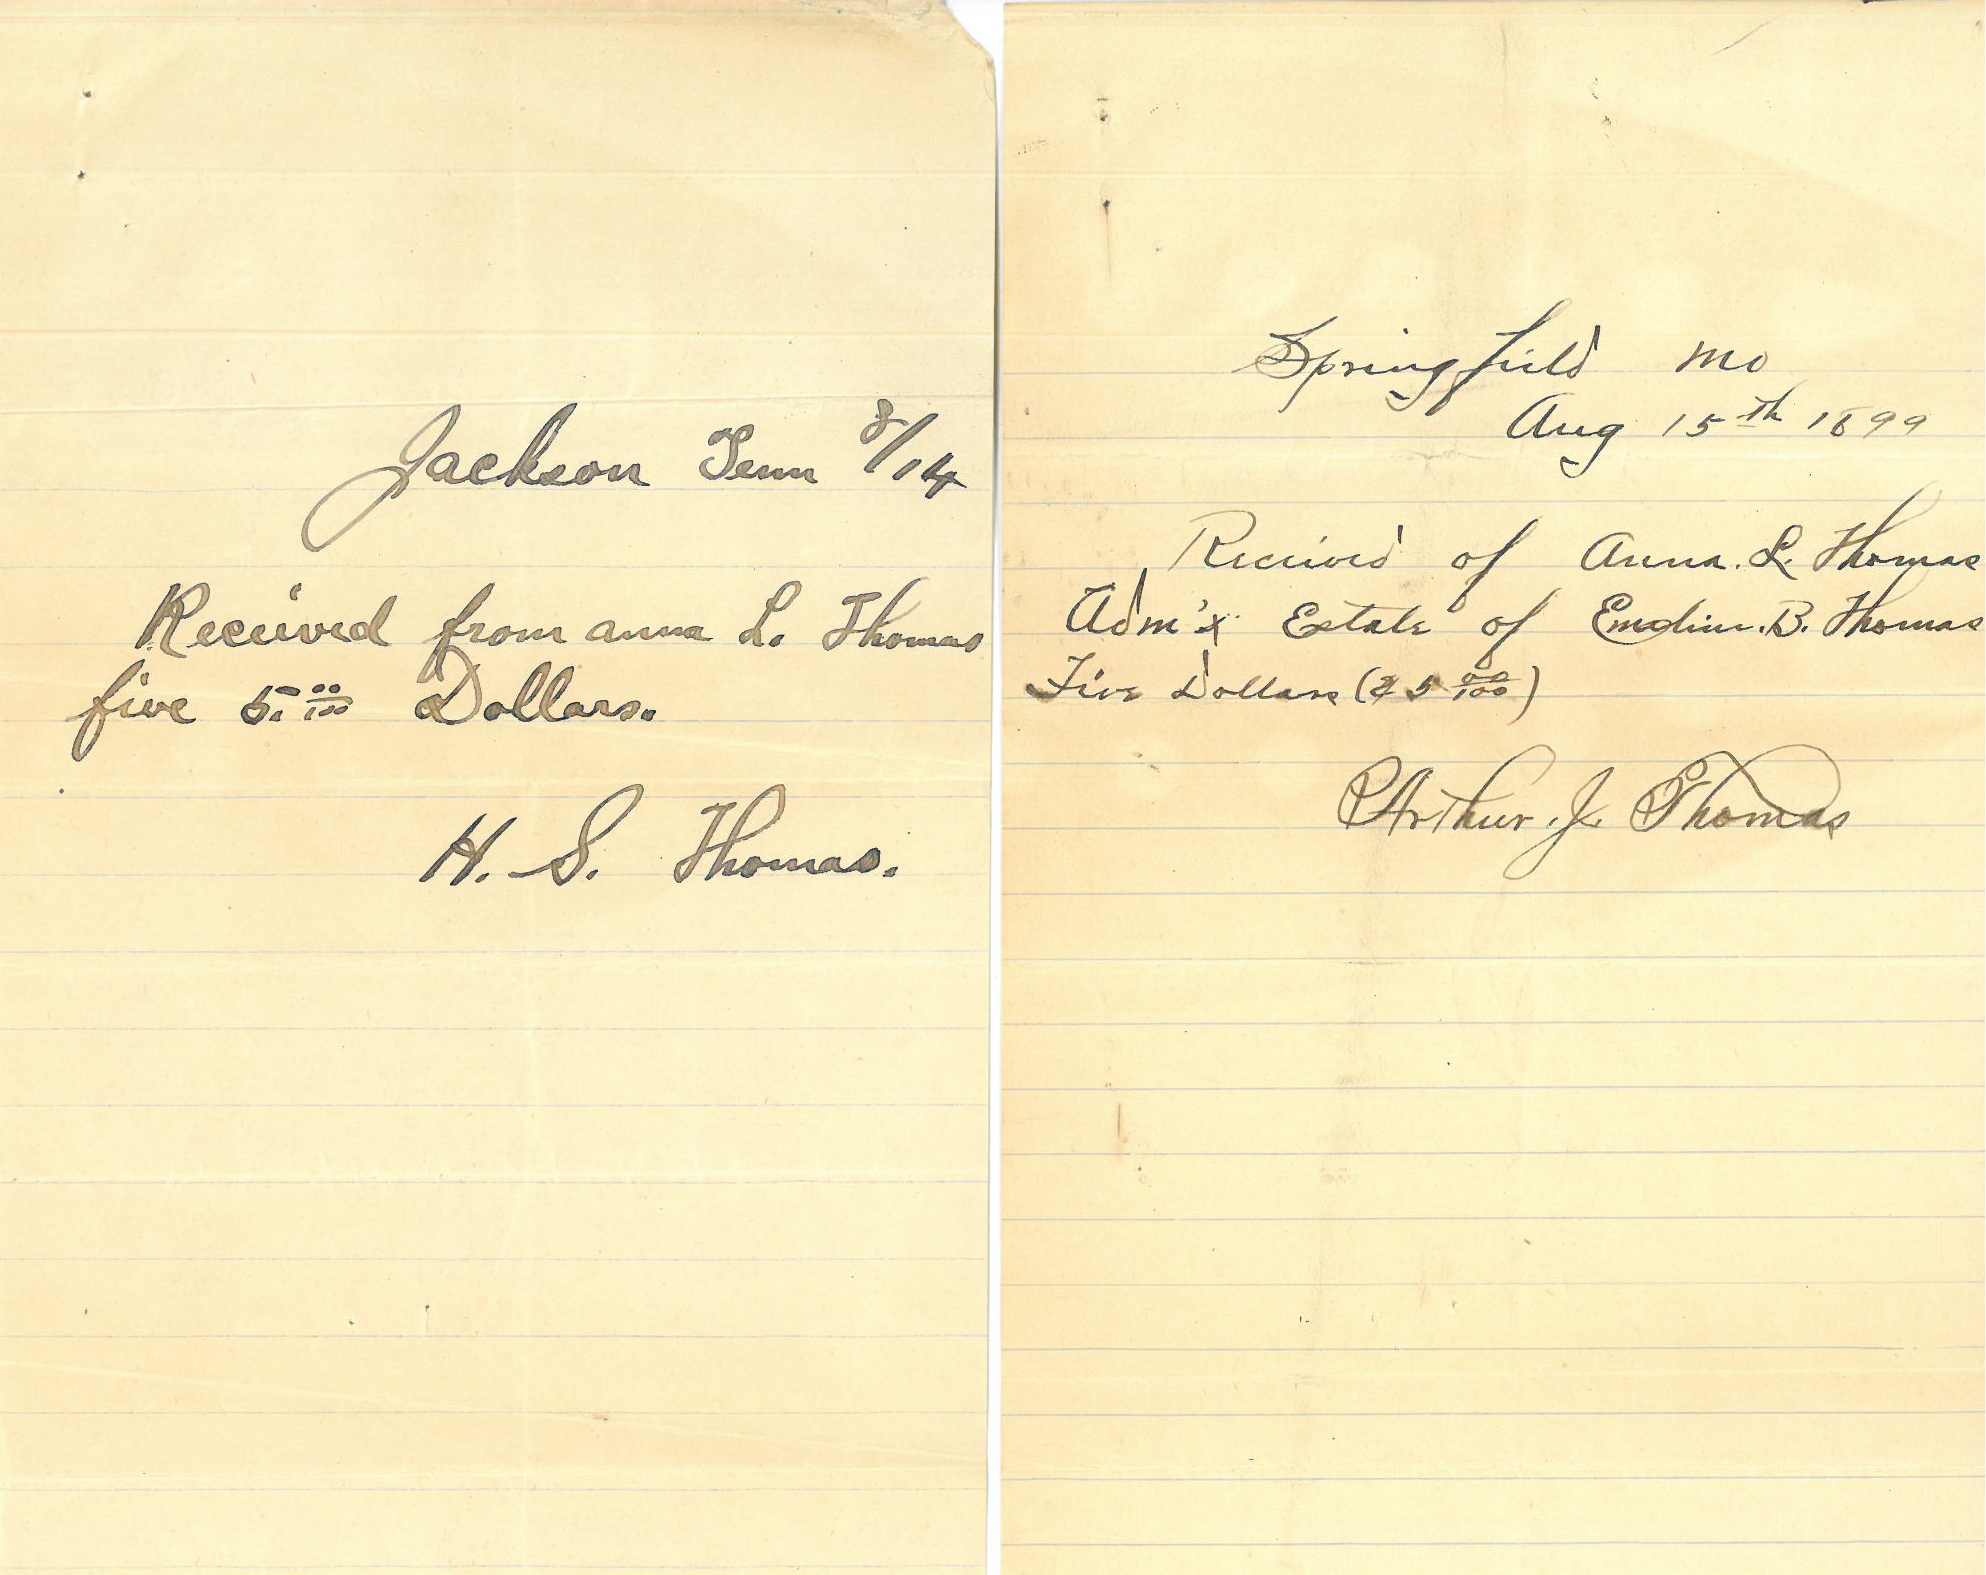 Jackson Tenn 8/14
Received from anna L. Thomas
five 5.00/100 Dollars.
H. S. Thomas.
Springfield Mo
Aug 15th 1899
Received of Anna. L. Thomas
Adm'x Estate of Emeline. B. Thomas
Five Dollars ($5 00/100)
Arthur. J. Thomas